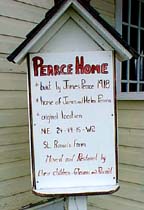 PEARCE HOME
* built by James Pearce 1918
* home of James and Helen Pearce
* original location
N.E. 24-49-15-W2
St. Brieux Farm
Moved and Restored by
their children - Glenna and Ronald